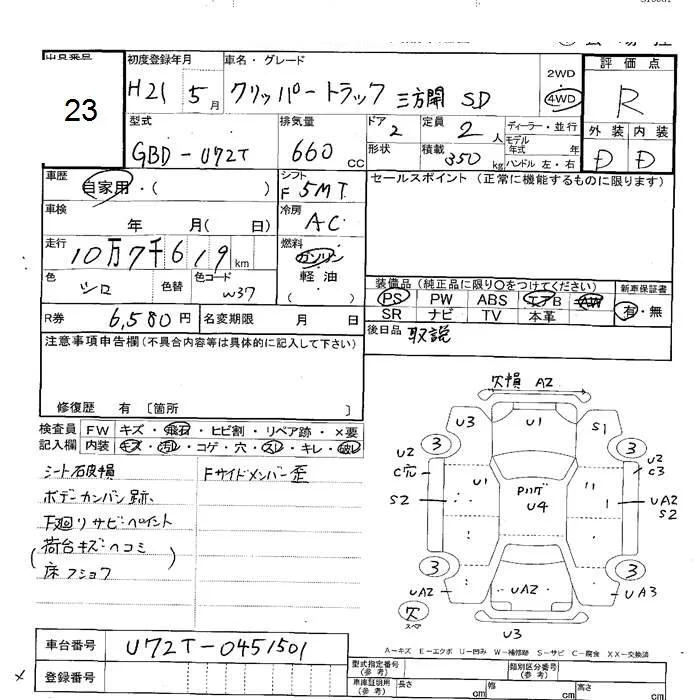 初度登録年月 車名・グレード 2WD 評価点
23 H21 5月 クリッパートラック 三方開 SD 4WD R
型式 排気量 ドア 2 定員 2人 ディーラー・並行 外装 内装
GBD-U72T 660cc 形状 積載 350kg モデル年式 年式 ハンドル 左・右 D D
車歴 自家用・( ) シフト F 5MT セールスポイント (正常に機能するものに限ります)
車検 年 月( 日) 冷房 AC
走行 10万7千619km 燃料 ガソリン
色 シロ 色替 色コード W37 軽油 ( )
装備品 (純正品に限り○をつけてください) 新車保証書
PS PW ABS エアB AW 有・無
SR ナビ TV 本革
R券 6,580円 名変期限 月 日 後日品 取説
注意事項申告欄(不具合内容等は具体的に記入して下さい)
修復歴 有 〔箇所 〕
検査員 FW キズ・飛石・ヒビ割・リペア跡・×要
記入欄 内装 キズ・汚レ・コゲ・穴・スレ・キレ・破レ
シート破損 Fサイドメンバー歪
ボデーカンバン跡、
下廻りサビペイント
(荷台キズヘコミ)
床フショク
欠損 A2
U3 U1 S1
3 3
U2 U2
C穴 C3
S2 Pハゲ UA2
U4 S2
3 3
UA2 UA2 UA3
欠 スペア
U3
A-キズ E-エクボ U-凹み W-補修跡 S-サビ C-腐食 XX-交換済
車台番号 U72T-0451501
登録番号 型式指定番号 (参考) 類別区分番号 (参考)
車庫証明用 (参考) 長さ cm 幅 cm 高さ cm